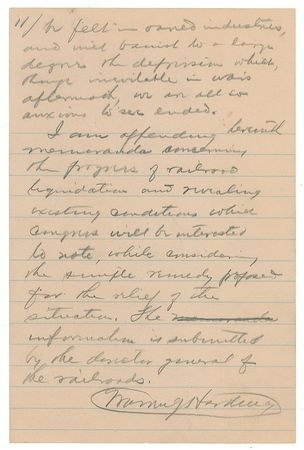 11/ be felt in varied industries,
and will banish to a large
degree the depression which,
though inevitable in war's
aftermath, we are all so
anxious to see ended.
I am appending herewith
memoranda concerning
the progress of railroad
liquidation and revealing
existing conditions which
congress will be interested
to note, while considering
the simple remedy proposed
for the relief of the
situation. The memoranda
information is submitted
by the director general of
the railroads.
Warren G Harding